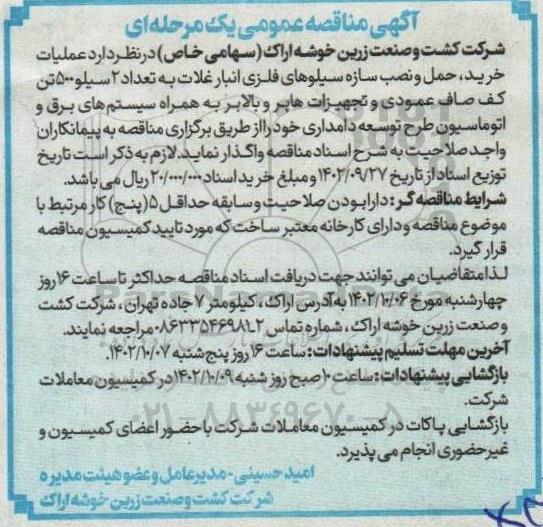 آگهی مناقصه عمومی یک مرحله‌ای
شرکت کشت و صنعت زرین خوشه اراک (سهامی خاص) در نظر دارد عملیات
خرید، حمل و نصب سازه سیلوهای فلزی انبار غلات به تعداد ۲ سیلو ۵۰۰ تن
کف صاف عمودی و تجهیزات هاپر و بالابر به همراه سیستم های برق و
اتوماسیون طرح توسعه دامداری خود را از طریق برگزاری مناقصه به پیمانکاران
واجد صلاحیت به شرح اسناد مناقصه واگذار نماید. لازم به ذکر است تاریخ
توزیع اسناد از تاریخ ۱۴۰۲/۰۹/۲۷ و مبلغ خرید اسناد ۲۰/۰۰۰/۰۰۰ ریال می باشد.
شرایط مناقصه گر: دارا بودن صلاحیت و سابقه حداقل ۵ (پنج) کار مرتبط با
موضوع مناقصه و دارای کارخانه معتبر ساخت که مورد تایید کمیسیون مناقصه
قرار گیرد.
لذا متقاضیان می توانند جهت دریافت اسناد مناقصه حداکثر تا ساعت ۱۶ روز
چهارشنبه مورخ ۱۴۰۲/۱۰/۰۶ به آدرس اراک، کیلومتر ۷ جاده تهران، شرکت کشت
و صنعت زرین خوشه اراک، شماره تماس ۰۸۶۳۳۵۴۶۹۸۱_۲ مراجعه نمایند.
آخرین مهلت تسلیم پیشنهادات: ساعت ۱۶ روز پنج شنبه ۱۴۰۲/۱۰/۰۷.
بازگشایی پیشنهادات: ساعت ۱۰ صبح روز شنبه ۱۴۰۲/۱۰/۰۹ در کمیسیون معاملات
شرکت.
بازگشایی پاکات در کمیسیون معاملات شرکت با حضور اعضای کمیسیون و
غیرحضوری انجام می پذیرد.
امید حسینی - مدیرعامل و عضو هیئت مدیره
شرکت کشت و صنعت زرین خوشه اراک
۰۲۱-۸۸۳۴۹۶۷۰-۵